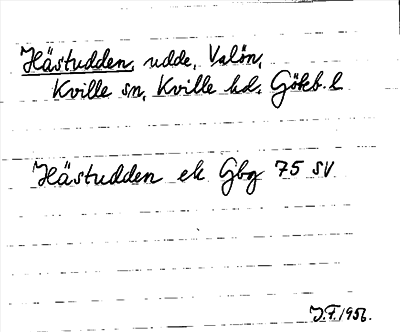 Hästudden, udde, Valön,
Kville sn, Kville hd, Göteb. l
Hästudden ek Gbg 75 SV
J.F. 1956.